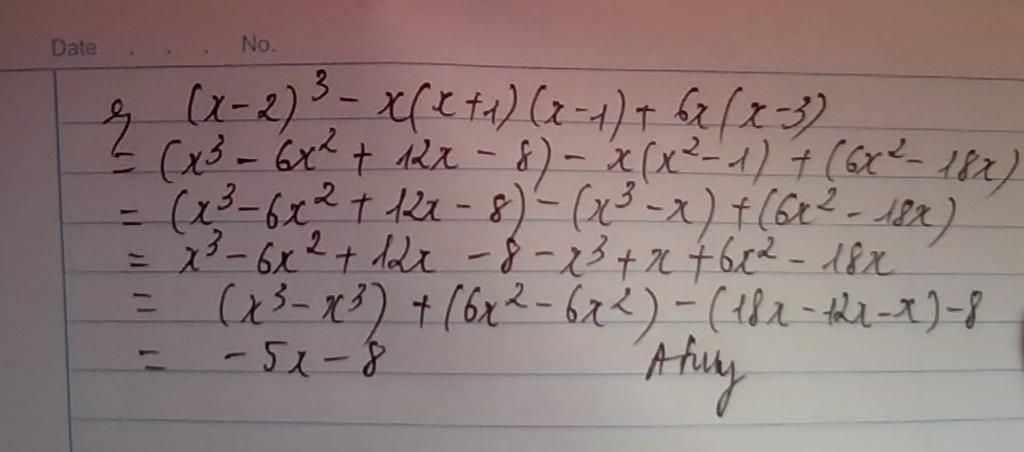 Date . . . No.
(x-2)³ - x(x+1)(x-1) + 6x(x-3)
= (x³ - 6x² + 12x - 8) - x(x² - 1) + (6x² - 18x)
= (x³ - 6x² + 12x - 8) - (x³ - x) + (6x² - 18x)
= x³ - 6x² + 12x - 8 - x³ + x + 6x² - 18x
= (x³ - x³) + (6x² - 6x²) - (18x - 12x - x) - 8
= -5x - 8